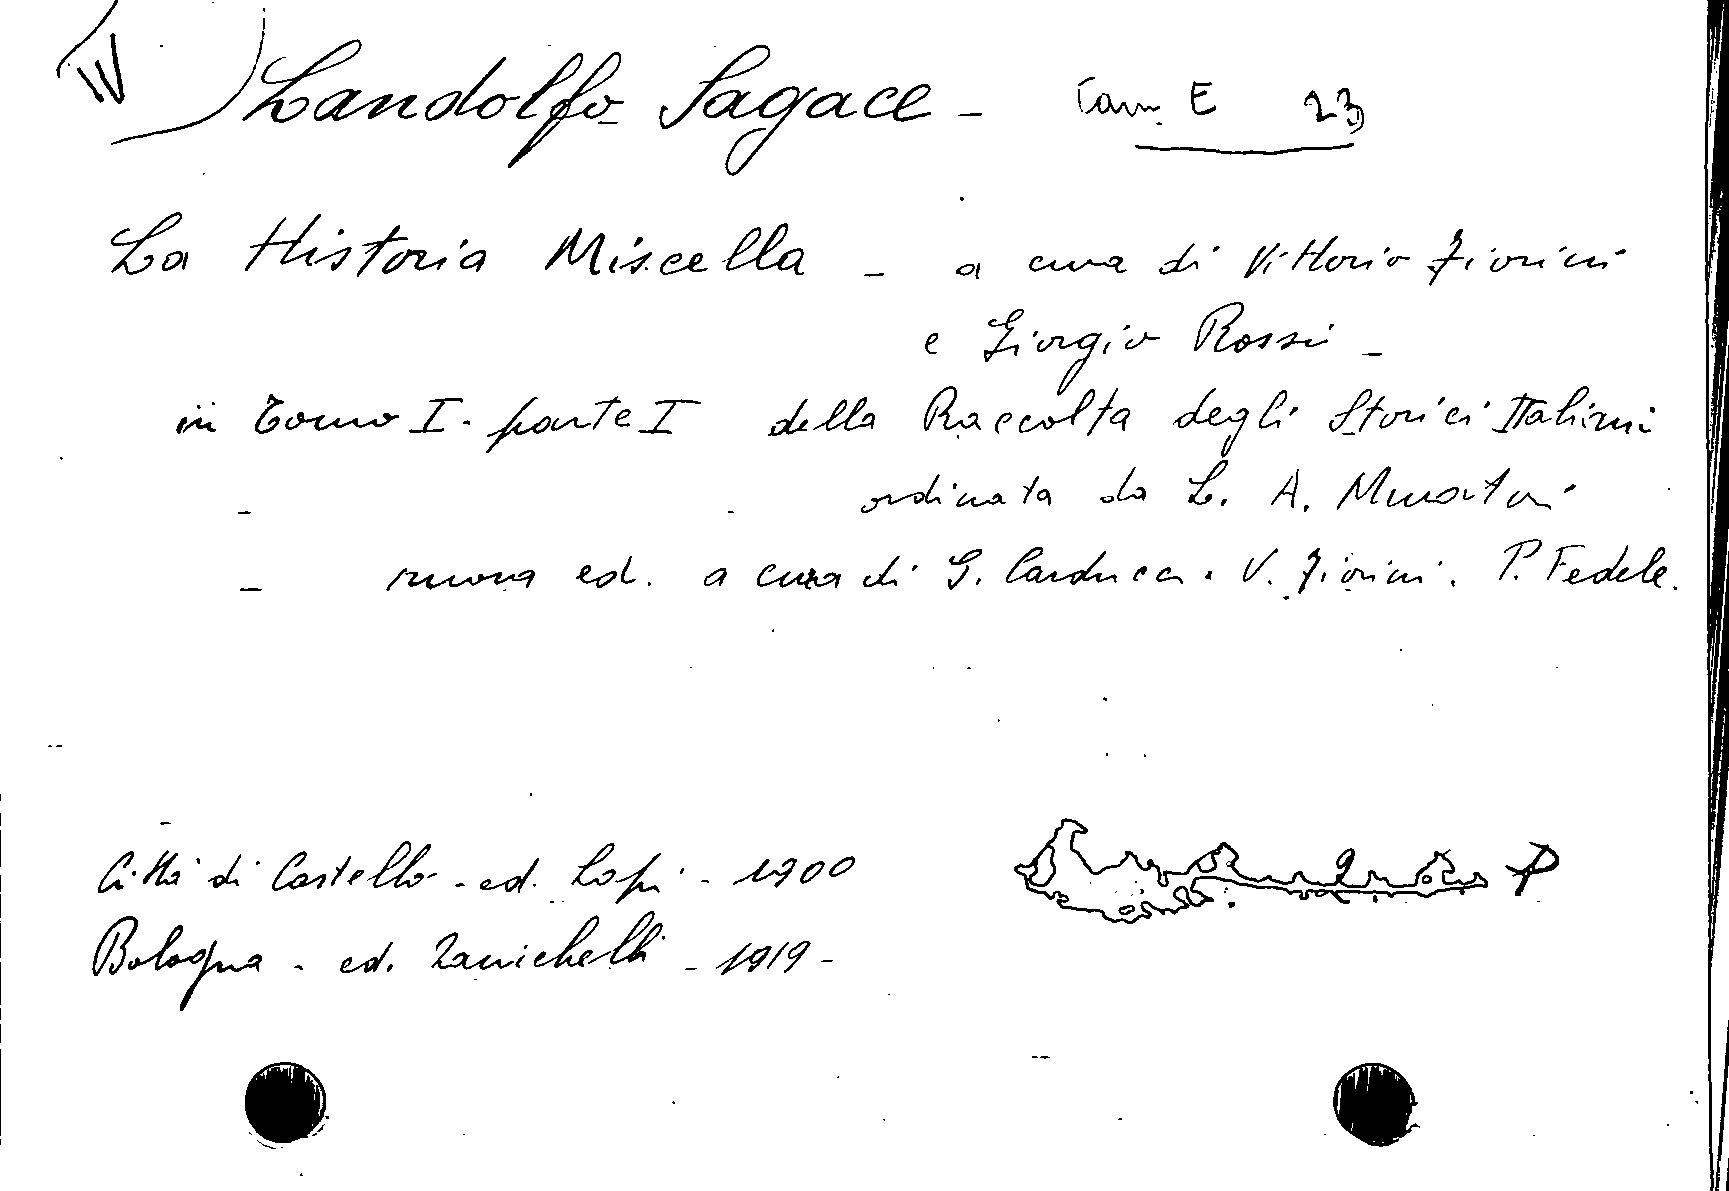 IV Landolfo Sagace - Cam. E 23
La Historia Miscella - a cura di Vittorio Fiorini
e Giorgio Rossi -
in Tomo I. parte I della Raccolta degli Storici Italiani
- ordinata da L. A. Muratori
- nuova ed. a cura di G. Carducci. V. Fiorini. P. Fedele.
Città di Castello - ed. Lapi - 1900
P
Bologna - ed. Zanichelli - 1919 -